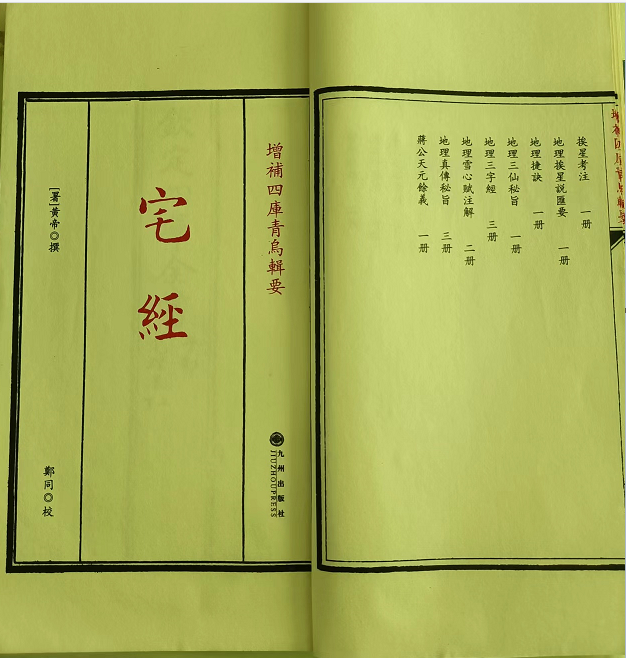 挨星考注 一册
地理挨星說匯要 一册
地理捷訣 一册
地理三仙秘旨 一册
地理三字經 三册
地理雪心賦注解 二册
地理真傳秘旨 三册
蔣公天元餘義 一册
增補四庫青烏輯要
九州出版社
JIUZHOUPRESS
宅經
[署]黃帝◎撰
鄭同◎校